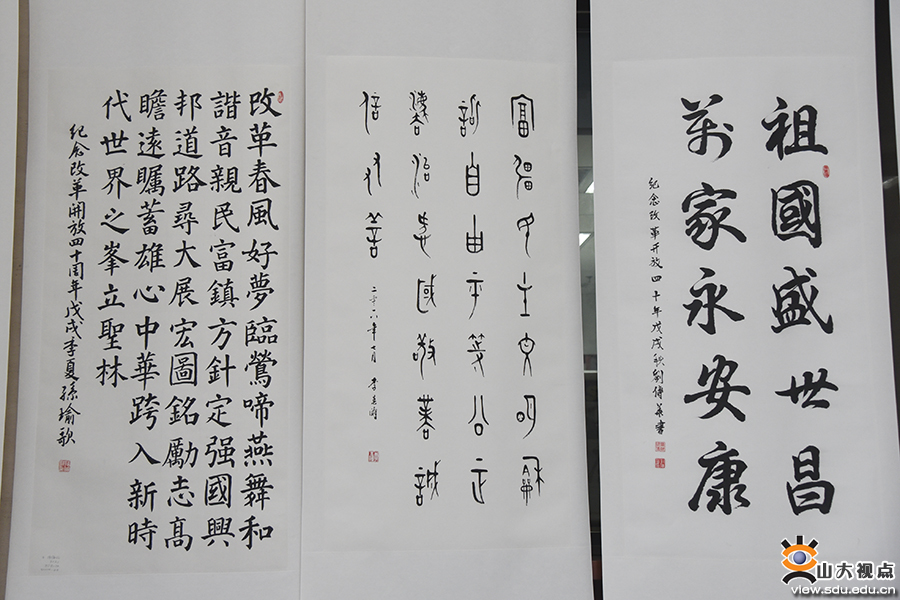 祖國盛世昌
萬家永安康
纪念改革开放四十年戊戌秋劉傳
富彊民主文明龢
諧自由平等公正
灋治愛國敬業誠
信友善
二零一八年七月
改革春風好夢臨鶯啼燕舞和
諧音親民富鎮方針定强國興
邦道路尋大展宏圖銘勵志髙
瞻遠矚蓄雄心中華跨入新時
代世界之峯立聖林
紀念改革開放四十周年戊戌季夏孫瑜歌
山大视点
view.sdu.edu.cn